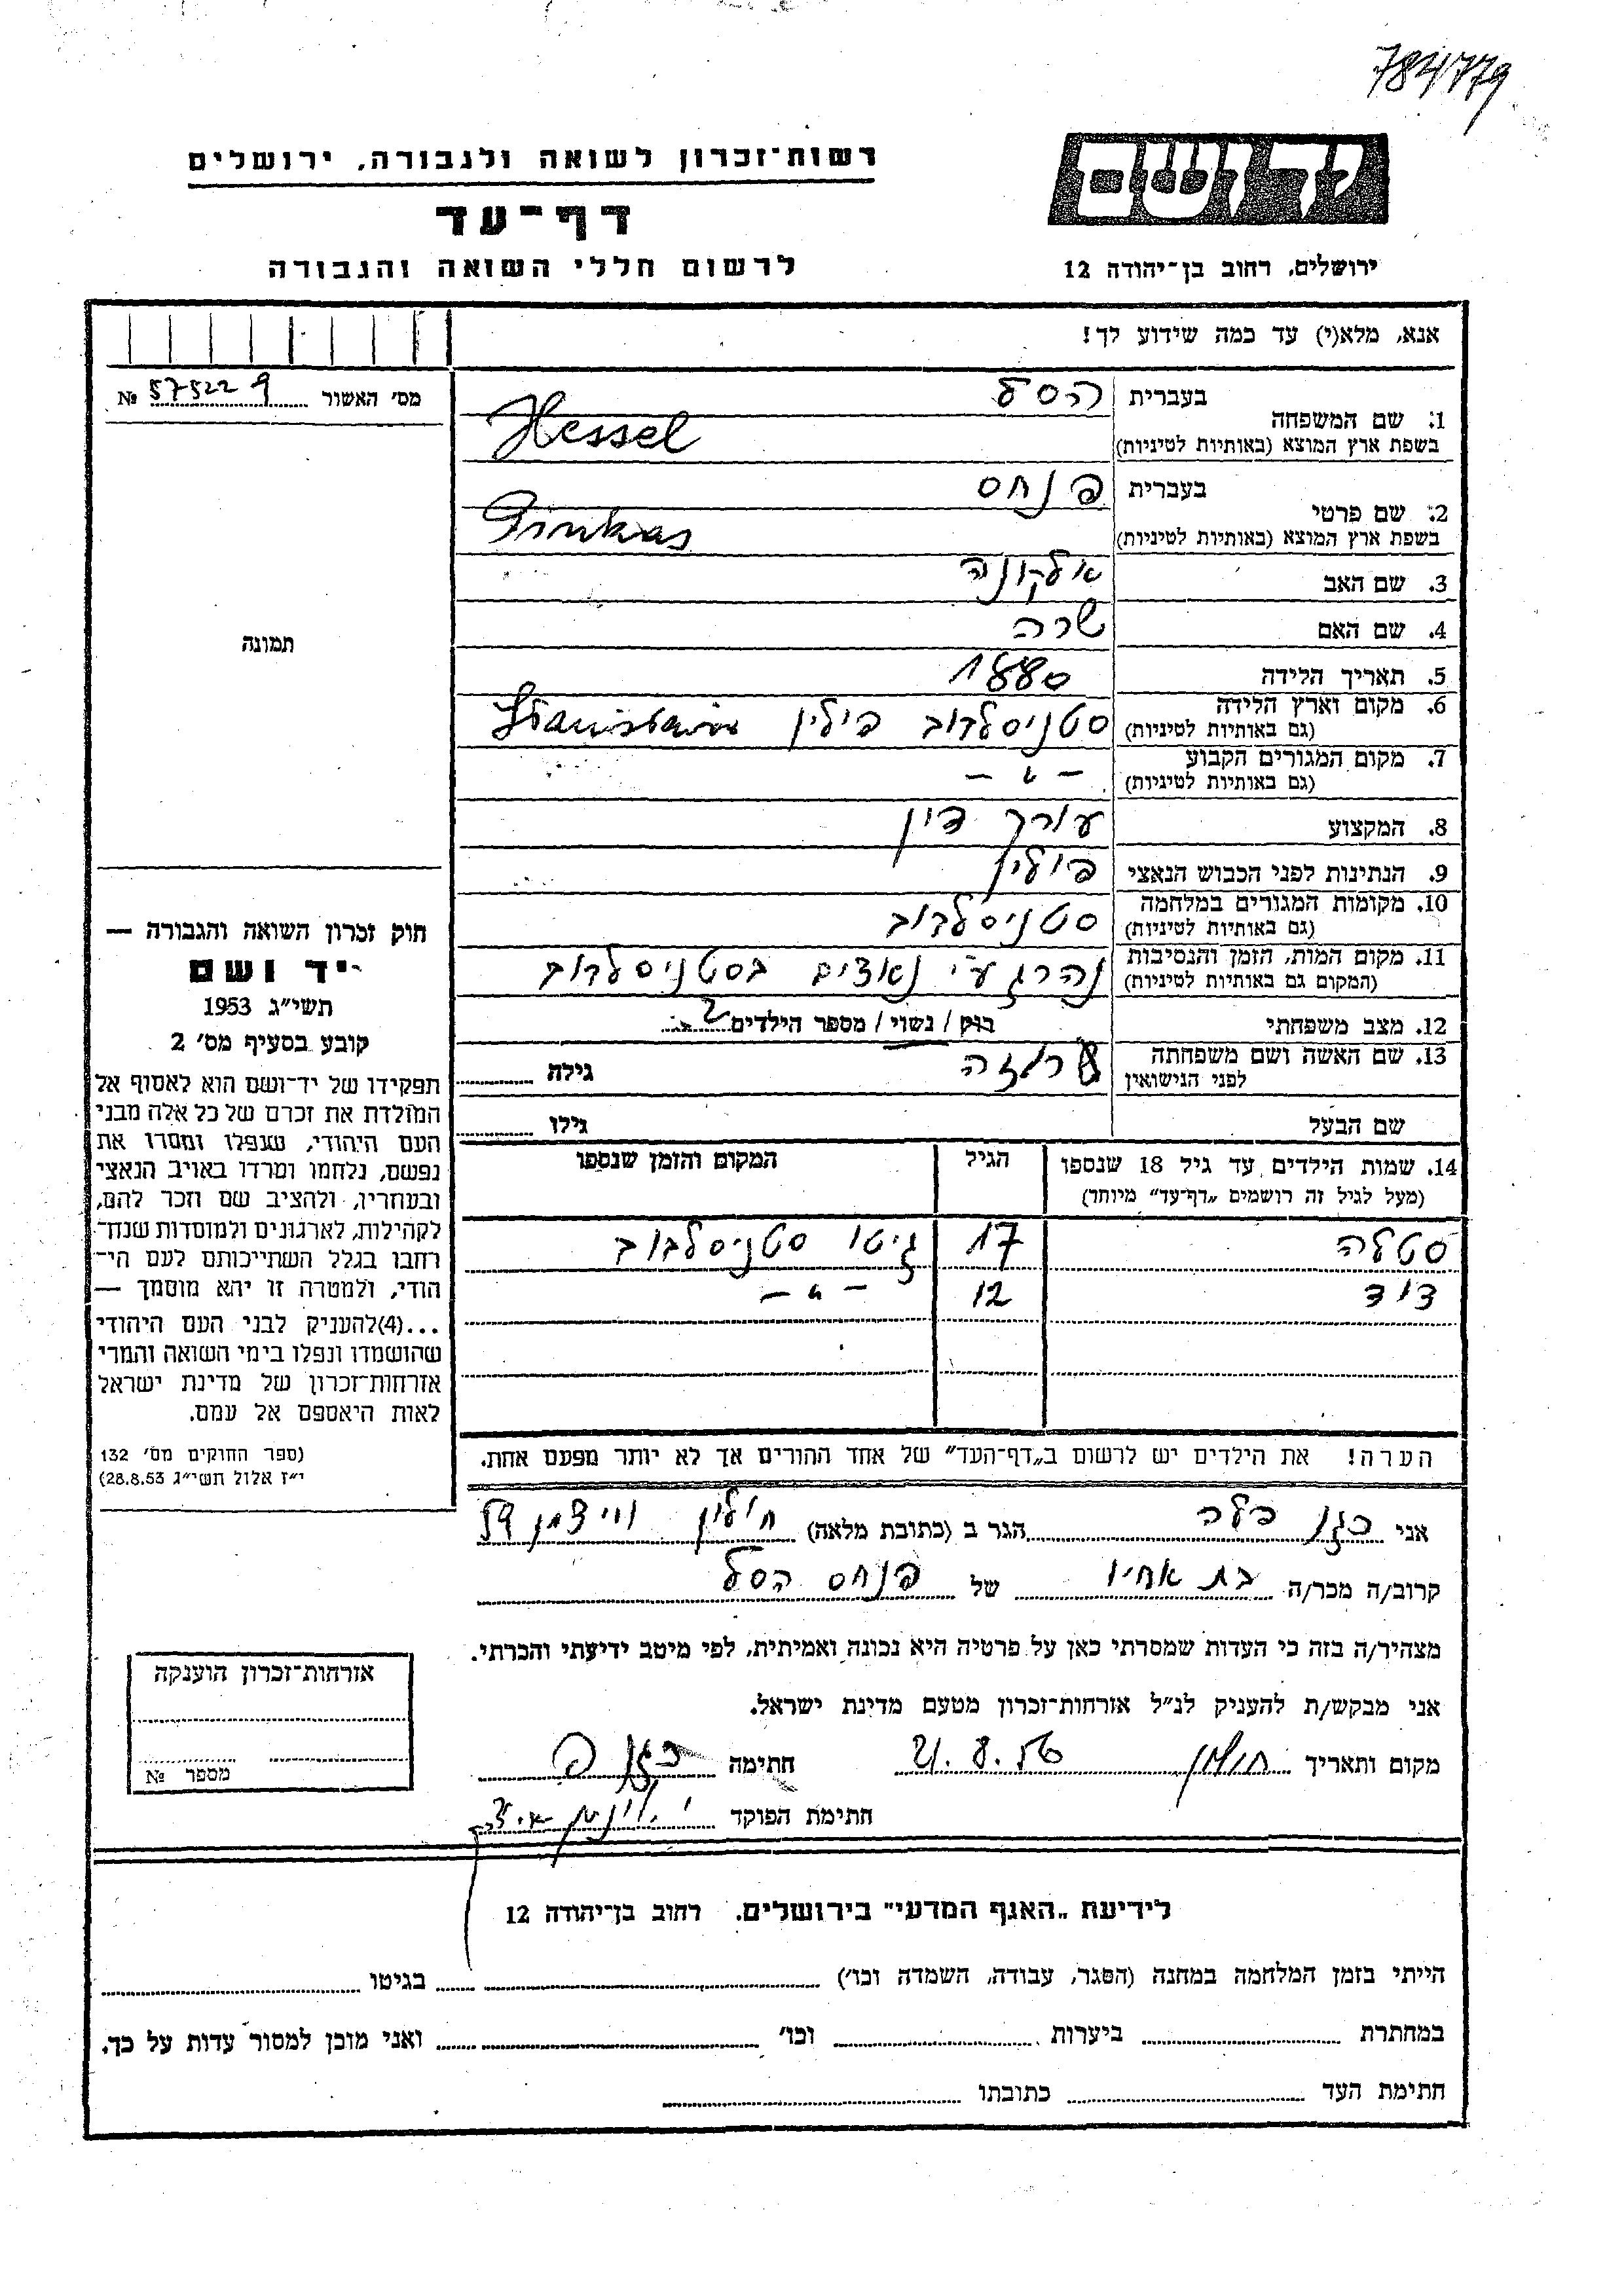 784779
רשות־זכרון לשואה ולגבורה, ירושלים
דף־עד
לרשום חללי השואה והגבורה
יד ושם
ירושלים, רחוב בן־יהודה 12
אנא, מלא(י) עד כמה שידוע לך!
מס׳ האשור 575229 №
תמונה
1. שם המשפחה בעברית הסל
בשפת ארץ המוצא (באותיות לטיניות) Hessel
2. שם פרטי בעברית פנחס
בשפת ארץ המוצא (באותיות לטיניות) Pinkas
3. שם האב אלקונה
4. שם האם שרה
5. תאריך הלידה 1880
6. מקום וארץ הלידה (גם באותיות לטיניות) סטניסלבוב פולין
7. מקום המגורים הקבוע (גם באותיות לטיניות) — " —
8. המקצוע עורך דין
9. הנתינות לפני הכבוש הנאצי פולין
10. מקומות המגורים במלחמה (גם באותיות לטיניות) סטניסלבוב
11. מקום המות, הזמן והנסיבות (המקום גם באותיות לטיניות) נהרג ע"י נאצים בסטניסלבוב
12. מצב משפחתי רווק / נשוי / מספר הילדים 2
13. שם האשה ושם משפחתה לפני הנישואין רוזה גילה
שם הבעל גילו
14. שמות הילדים עד גיל 18 שנספו (מעל לגיל זה רושמים „דף־עד” מיוחד) הגיל המקום והזמן שנספו
סטלה 17 גיטו סטניסלבוב
דוד 12 — " —
הערה! את הילדים יש לרשום ב„דף־העד” של אחד ההורים אך לא יותר מפעם אחת.
חוק זכרון השואה והגבורה —
יד ושם
תשי״ג 1953
קובע בסעיף מס׳ 2
תפקידו של יד־ושם הוא לאסוף אל
המולדת את זכרם של כל אלה מבני
העם היהודי, שנפלו ומסרו את
נפשם, נלחמו ומרדו באויב הנאצי
ובעוזריו, ולהציב שם וזכר להם,
לקהילות, לארגונים ולמוסדות שנח־
רחבו בגלל השתייכותם לעם הי־
הודי, ולמטרה זו יהא מוסמך —
...(4)להעניק לבני העם היהודי
שהושמדו ונפלו בימי השואה והמרי
אזרחות־זכרון של מדינת ישראל
לאות היאספם אל עמם.
(ספר החוקים מס׳ 132
י״ז אלול תשי״ג 28.8.53)
אני כגן בלה הגר ב (כתובת מלאה) חולון ויצמן 59
קרוב/ה מכר/ה בת אחיו של פנחס הסל
מצהיר/ה בזה כי העדות שמסרתי כאן על פרטיה היא נכונה ואמיתית, לפי מיטב ידיעתי והכרתי.
אני מבקש/ת להעניק לנ״ל אזרחות־זכרון מטעם מדינת ישראל.
מקום ותאריך חולון 21.8.56 חתימה כגן ב
חתימת הפוקד
אזרחות־זכרון הוענקה
מספר №
לידיעת „האגף המדעי” בירושלים, רחוב בן־יהודה 12
הייתי בזמן המלחמה במחנה (הסגר, עבודה, השמדה וכו׳) בגיטו
במחתרת ביערות וכו׳ ואני מוכן למסור עדות על כך.
חתימת העד כתובתו